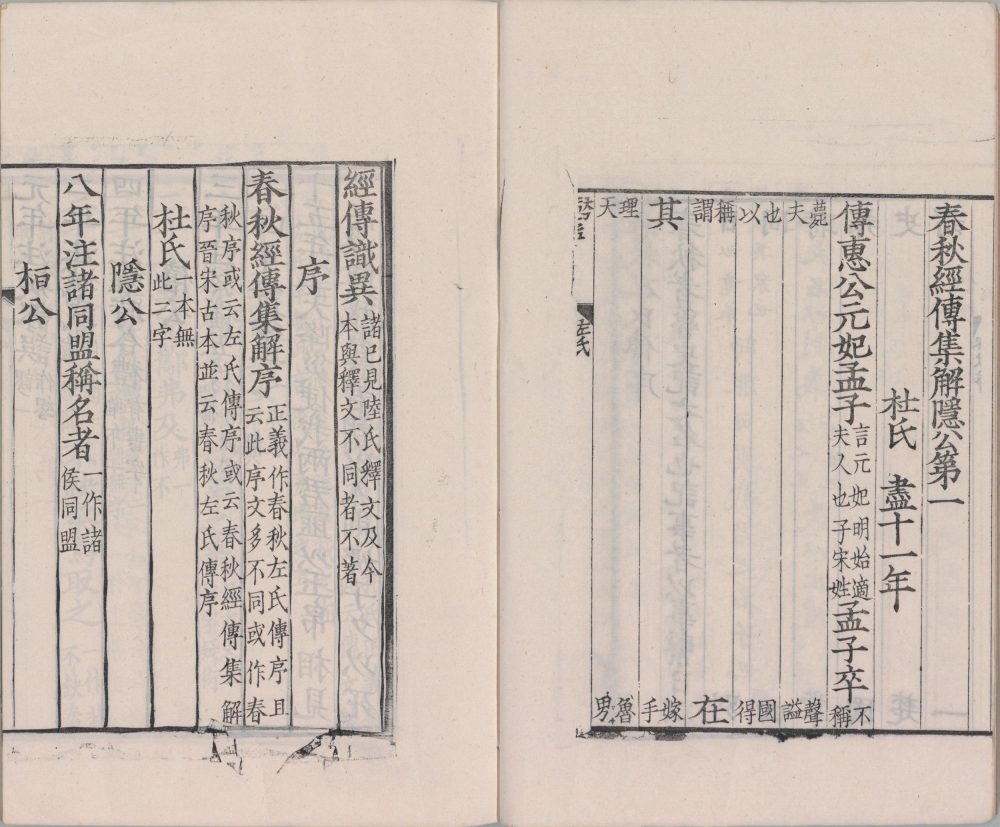 春秋經傳集解隱公第一
杜氏 盡十一年
傳惠公元妃孟子言元妃明始適夫人也子宋姓孟子卒不稱
薨夫 聲謚
也以 國得
稱謂 在
其 嫁手
理天 魯男
左氏
經傳識異諸已見陸氏釋文及今本與釋文不同者不著
序
春秋經傳集解序正義作春秋左氏傳序且云此序文多不同或作春
秋序或云左氏傳序或云春秋經傳集解序晉宋古本並云春秋左氏傳序
杜氏一本無此二字
隱公
八年注諸同盟稱名者一作諸侯同盟
桓公